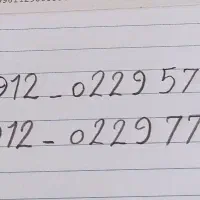 912 - 022957
912 - 022977